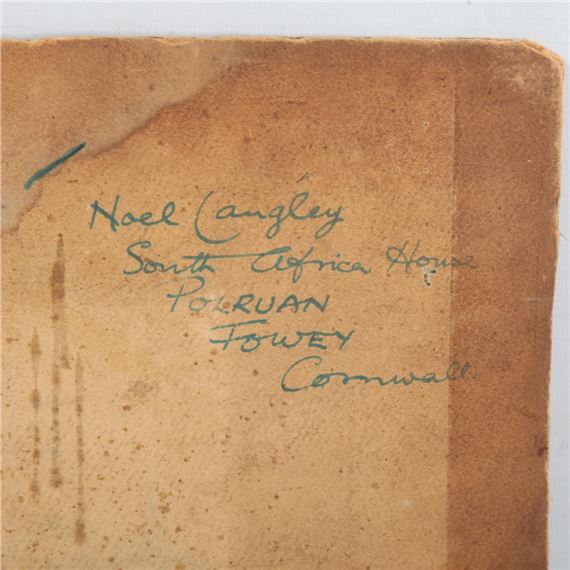 Noel Langley
South Africa House
POLRUAN
FOWEY
Cornwall.